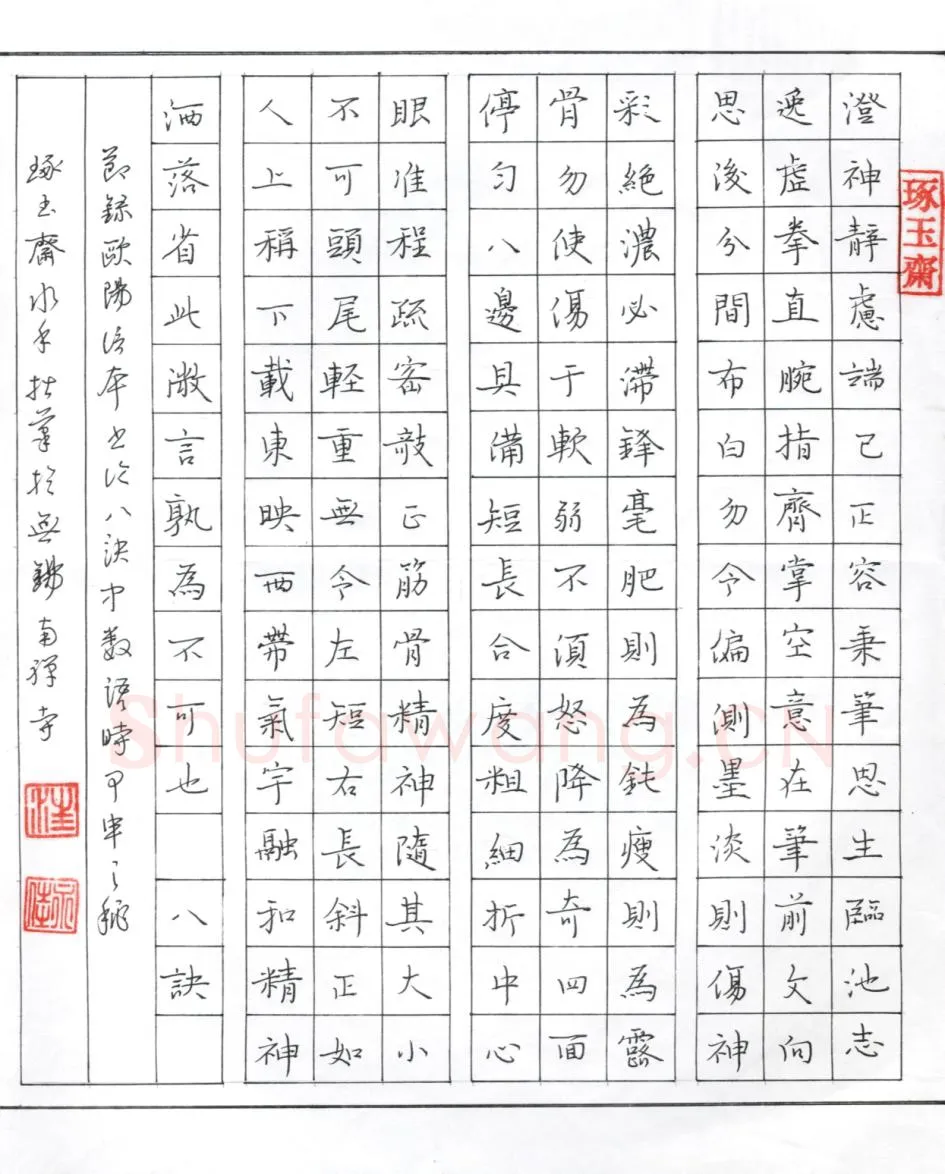 琢玉齋
澄神靜慮端己正容秉筆思生臨池志
逸虛拳直腕指齊掌空意在筆前文向
思後分間布白勿令偏側墨淡則傷神
彩絕濃必滯鋒毫肥則為鈍瘦則為露
骨勿使傷于軟弱不須怒降為奇四面
停勻八邊具備短長合度粗細折中心
眼准程疏密敧正筋骨精神隨其大小
不可頭尾輕重無令左短右長斜正如
人上稱下載東映西帶氣宇融和精神
洒落省此微言孰為不可也 八訣
節錄歐陽信本書論八訣中数語時甲申之秋
琢玉齋水手拙筆於無錫南禪寺
Shufawang.CN